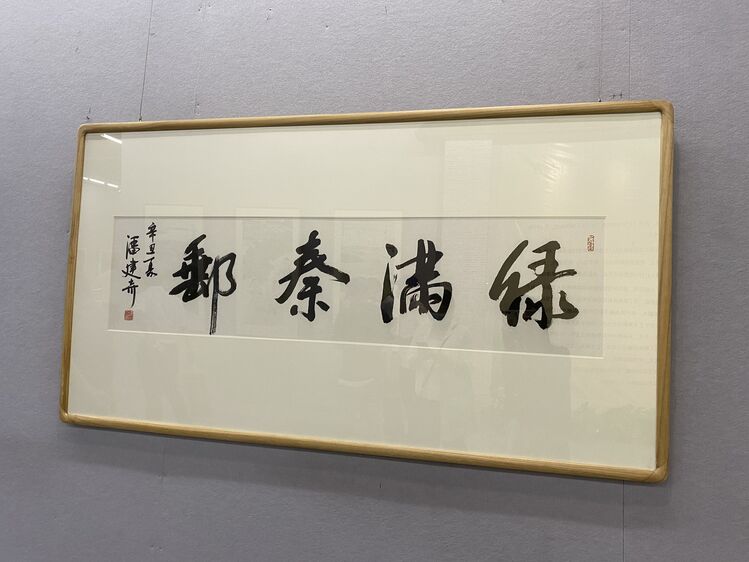 绿满秦郵
辛丑夏
潘建奇